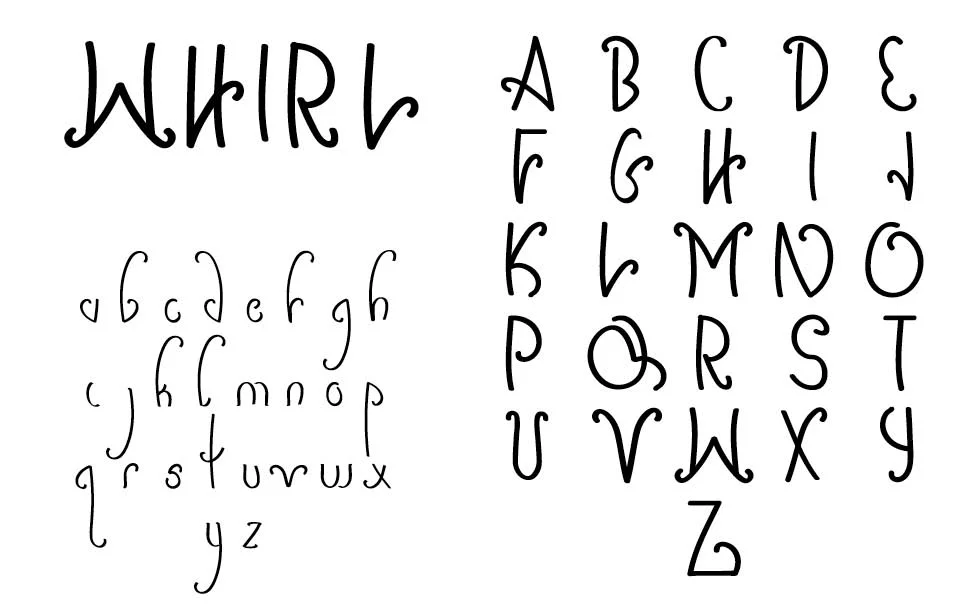 WHIRL
a b c d e f g h
i j k l m n o p
q r s t u v w x
y z
A B C D E
F G H I J
K L M N O
P Q R S T
U V W X Y
Z